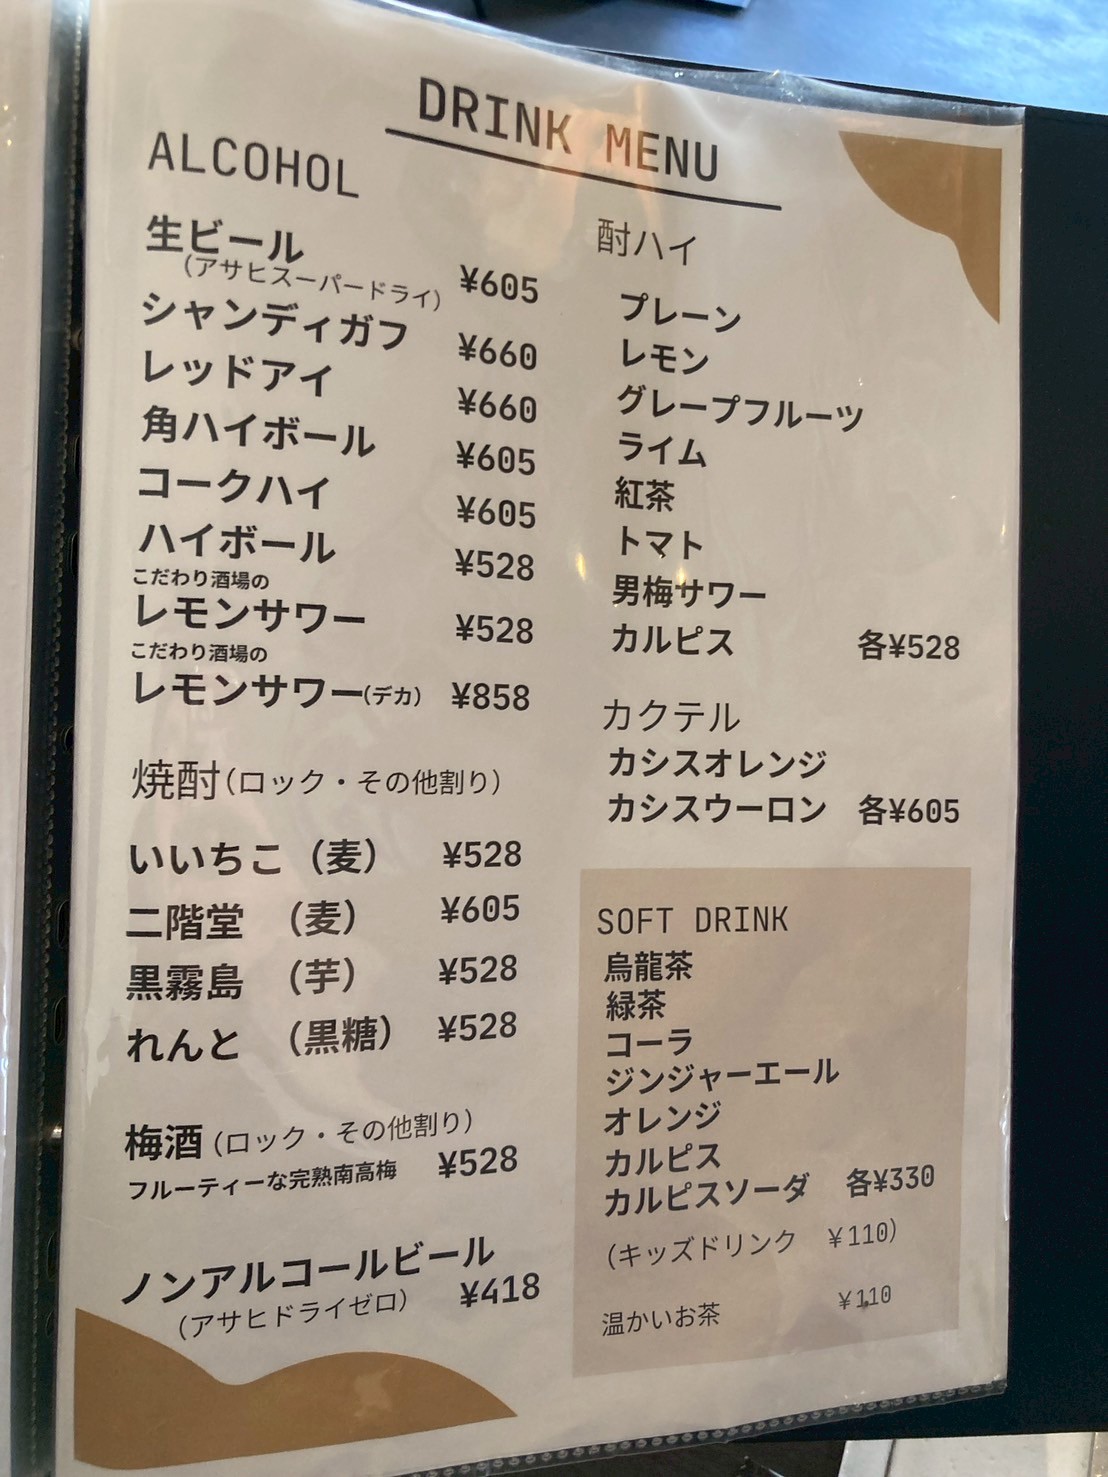 DRINK MENU
ALCOHOL
生ビール
(アサヒスーパードライ) ¥605
シャンディガフ ¥660
レッドアイ ¥660
角ハイボール ¥605
コークハイ ¥605
ハイボール ¥528
こだわり酒場の
レモンサワー ¥528
こだわり酒場の
レモンサワー(デカ) ¥858
焼酎(ロック・その他割り)
いいちこ(麦) ¥528
二階堂 (麦) ¥605
黒霧島 (芋) ¥528
れんと (黒糖) ¥528
梅酒(ロック・その他割り)
フルーティーな完熟南高梅 ¥528
ノンアルコールビール
(アサヒドライゼロ) ¥418
酎ハイ
プレーン
レモン
グレープフルーツ
ライム
紅茶
トマト
男梅サワー
カルピス 各¥528
カクテル
カシスオレンジ
カシスウーロン 各¥605
SOFT DRINK
烏龍茶
緑茶
コーラ
ジンジャーエール
オレンジ
カルピス
カルピスソーダ 各¥330
(キッズドリンク ¥110)
温かいお茶 ¥110